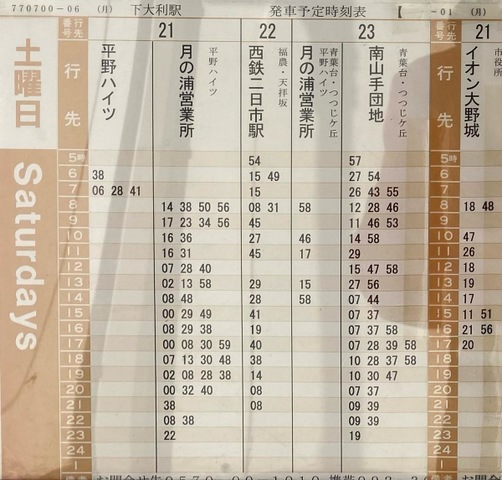 770700-06 (月) 下大利駅 発車予定時刻表 【 -01 (月)
行先 番号 21 22 23 行先 番号 21
土曜日 Saturdays
行先 平野ハイツ
月の浦営業所 平野ハイツ
西鉄二日市駅 福農・天拝坂
月の浦営業所 青葉台・つつじケ丘 平野ハイツ
南山手団地 青葉台・つつじケ丘
行先 イオン大野城 市役所
5時 54 57 5時
6 38 15 49 27 54 6
7 06 28 41 15 26 43 55 7
8 14 38 50 56 08 31 58 12 28 46 8 18 48
9 17 23 34 56 45 11 46 53 9
10 16 36 27 46 14 58 10 47
11 16 31 45 17 29 11 26
12 07 28 40 15 47 58 12 18
13 02 13 58 29 15 27 56 13 19
14 08 48 28 58 07 44 14 17
15 00 29 49 41 07 37 15 11 51
16 08 29 38 19 07 37 58 16 21 56
17 00 08 30 59 40 07 28 39 58 17 20
18 07 13 30 48 38 10 28 37 58 18
19 02 08 28 38 14 10 30 47 19
20 00 32 40 08 07 37 20
21 38 08 09 39 21
22 08 38 09 39 22
23 22 19 23
24 24
1 1